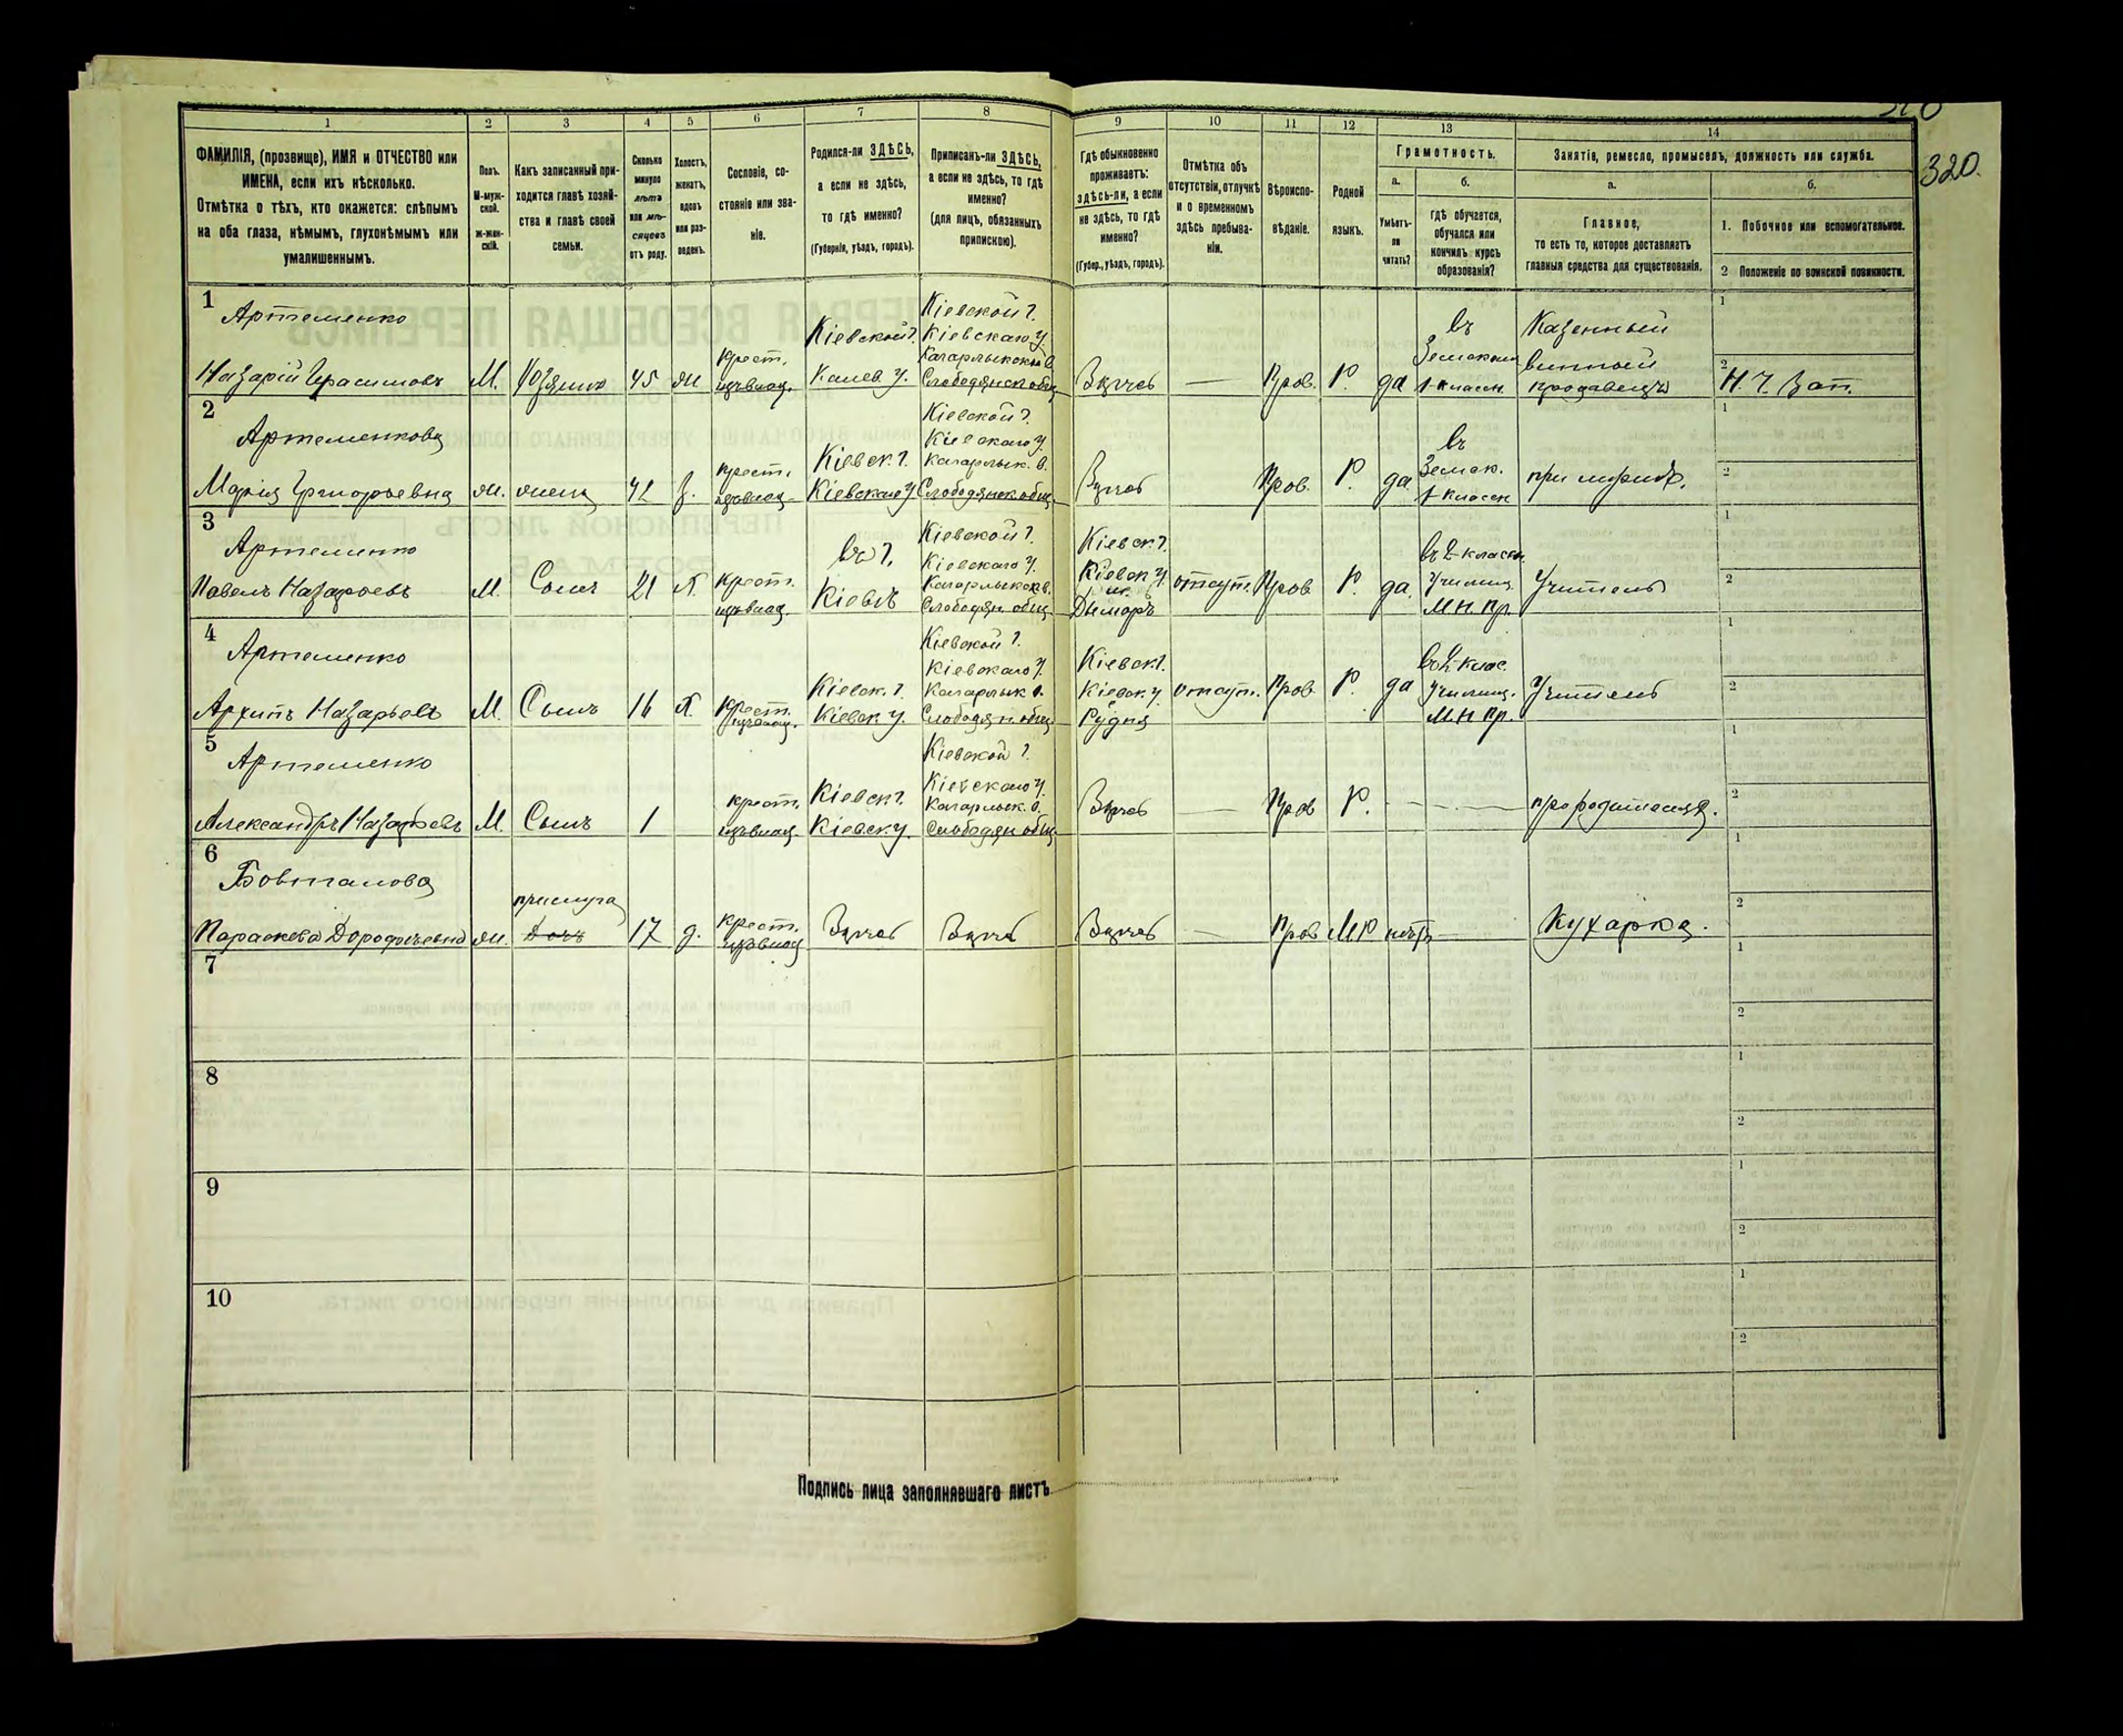 320
320.
1
2
3
4
5
6
7
8
9
10
11
12
13
14
ФАМИЛІЯ, (прозвище), ИМЯ и ОТЧЕСТВО или
ИМЕНА, если ихъ нѣсколько.
Отмѣтка о тѣхъ, кто окажется: слѣпымъ
на оба глаза, нѣмымъ, глухонѣмымъ или
умалишеннымъ.
Полъ.
М-муж-
ской.
Ж-жен-
скій.
Какъ записанный при-
ходится главѣ хозяй-
ства и главѣ своей
семьи.
Сколько
минуло
лѣтъ
или мѣ-
сяцевъ
отъ роду.
Холостъ,
женатъ,
вдовъ
или раз-
веденъ.
Сословіе, со-
стояніе или зва-
ніе.
Родился-ли ЗДѢСЬ,
а если не здѣсь,
то гдѣ именно?
(Губернія, уѣздъ, городъ).
Приписанъ-ли ЗДѢСЬ,
а если не здѣсь, то гдѣ
именно?
(для лицъ, обязанныхъ
припискою).
Гдѣ обыкновенно
проживаетъ:
здѣсь-ли, а если
не здѣсь, то гдѣ
именно?
(Губер., уѣздъ, городъ).
Отмѣтка объ
отсутствіи, отлучкѣ
и о временномъ
здѣсь пребыва-
ніи.
Вѣроиспо-
вѣданіе.
Родной
языкъ.
Грамотность.
а.
Умѣетъ-
ли
читать?
б.
гдѣ обучается,
обучался или
кончилъ курсъ
образованія?
Занятіе, ремесло, промыселъ, должность или служба.
а.
Главное,
то есть то, которое доставляетъ
главныя средства для существованія.
б.
1. Побочное или вспомогательное.
2 Положеніе по воинской повинности.
1
Артеменко
Назарій Герасимовъ
М.
Хозяинъ
45
ж
крест.
Кіевской г.
Канев. у.
Кіевской г.
Кіевскаго у.
Кагарлыкской в.
Слободянск. общ.
Здѣсь
—
Прав.
Р.
да
въ
Земском
1 классн.
Казенный
винный
продавецъ
1
2
Н. Ч. Зап.
2
Артеменкова
Марія Григорьевна
ж.
жена
42
з.
крест.
Кіевск. г.
Кіевскаго у.
Кіевской г.
Кіевскаго у.
Кагарлык. в.
Слободянск. общ.
Здѣсь
Прав.
Р.
да
въ
Земск.
1 классн
при мужѣ.
1
2
3
Артеменко
Павелъ Назарьевъ
М.
Сынъ
21
Х.
крест.
въ г.
Кіевѣ
Кіевской г.
Кіевскаго у.
Кагарлыкск. в.
Слободян. общ.
Кіевск. г.
Кіевск у.
м.
Дымеръ
отсут.
Прав
Р.
да
въ 2-классн.
училищ.
М. Н. Пр.
Учитель
1
2
4
Артеменко
Архипъ Назарьевъ
М.
Сынъ
16
Х.
крест.
Кіевск. г.
Кіевск у.
Кіевской г.
Кіевскаго у.
Кагарлык в.
Слободян. общ.
Кіевск г.
Кіевск. у.
с
Рудня
отсут.
Прав.
Р.
да
въ 2-клас.
училищ.
М. Н. Пр.
Учитель
1
2
5
Артеменко
Александръ Назарьевъ
М.
Сынъ
1
крест.
Кіевск г.
Кіевск. у.
Кіевской г.
Кіевскаго у.
Кагарлык. в.
Слободян общ.
Здѣсь
—
Прав
Р.
—
1
2
6
Бовталова
Параскева Дорофеевна
ж.
прислуга
Дочь
17
д.
крест.
Здѣсь
Здѣсь
Здѣсь
—
Прав
МР
нѣтъ
—
Кухарка.
1
2
7
1
2
8
1
2
9
1
2
10
1
2
Подпись лица заполнявшаго листъ